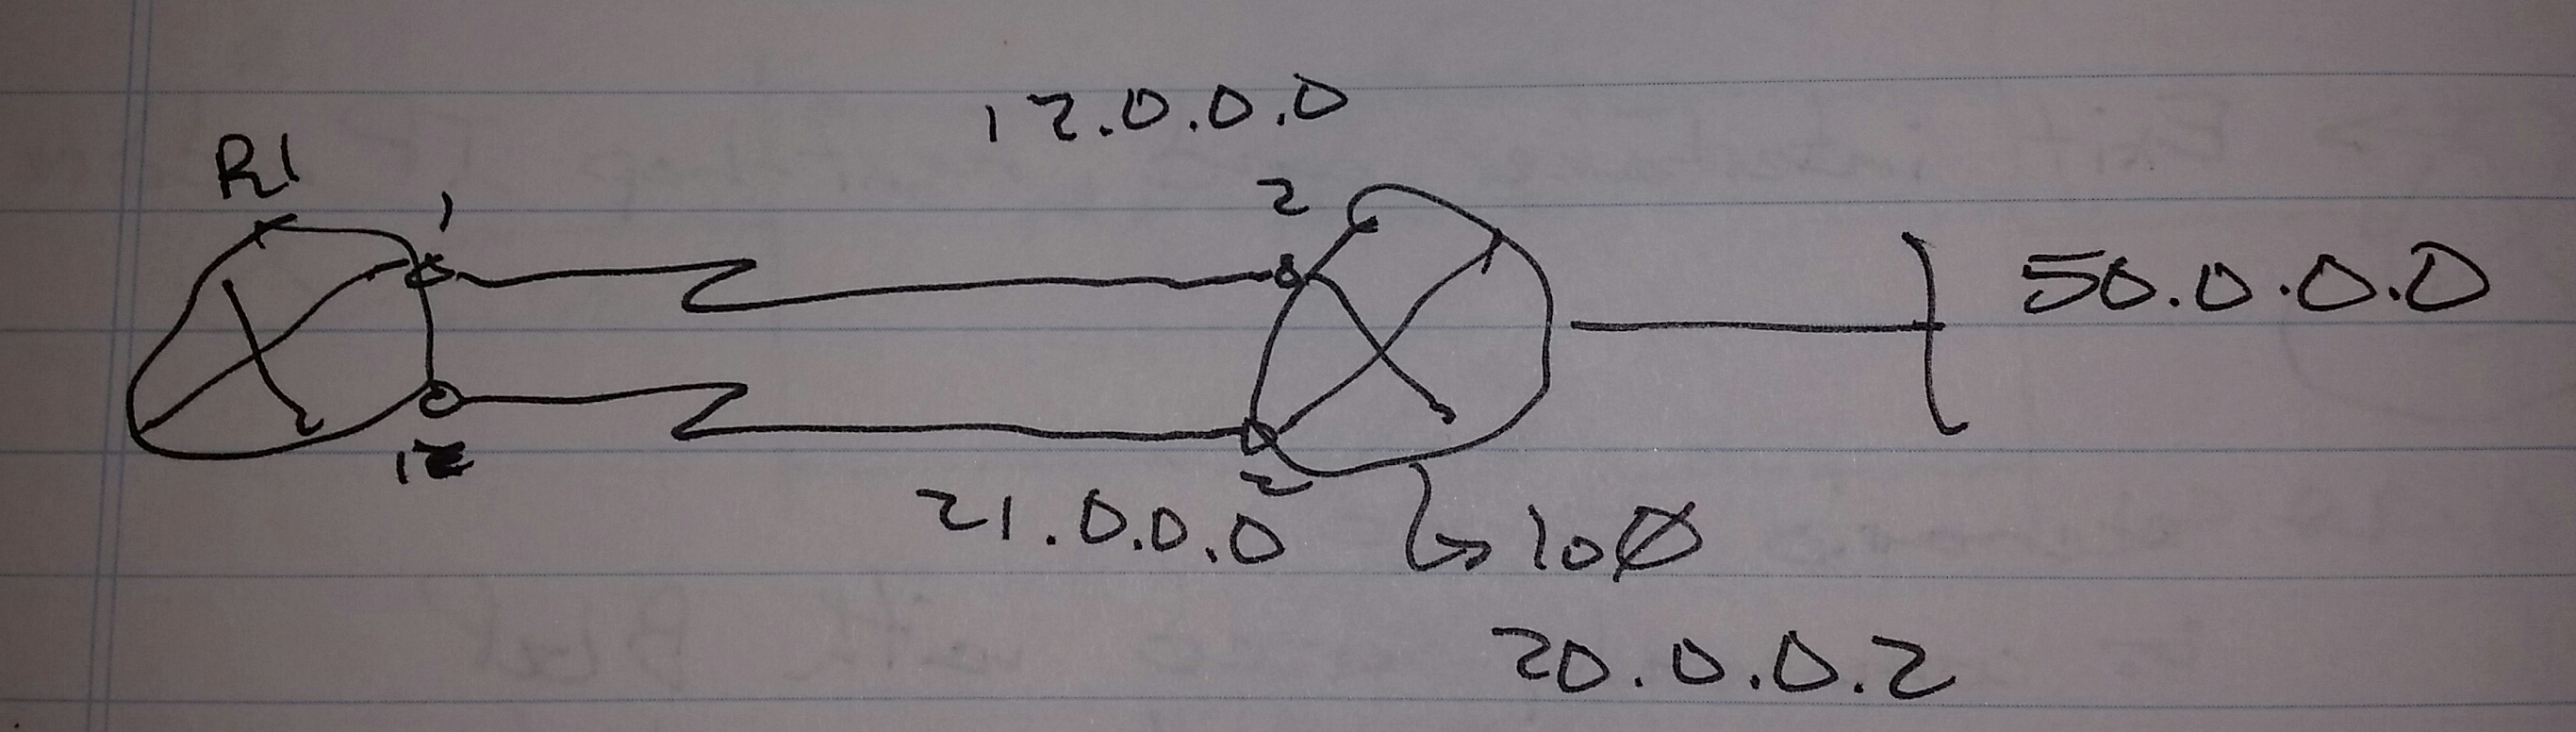 12.0.0.0
R1
1
2
50.0.0.0
1
21.0.0.0
2
loØ
20.0.0.2